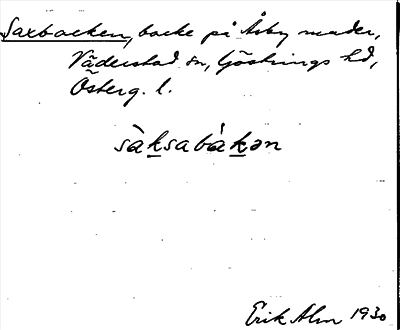 Saxbacken, backe på Åsby mader,
Väderstad sn, Göstrings hd,
Österg. l.
sàk̲sabák̲ən
Erik Alm 1930